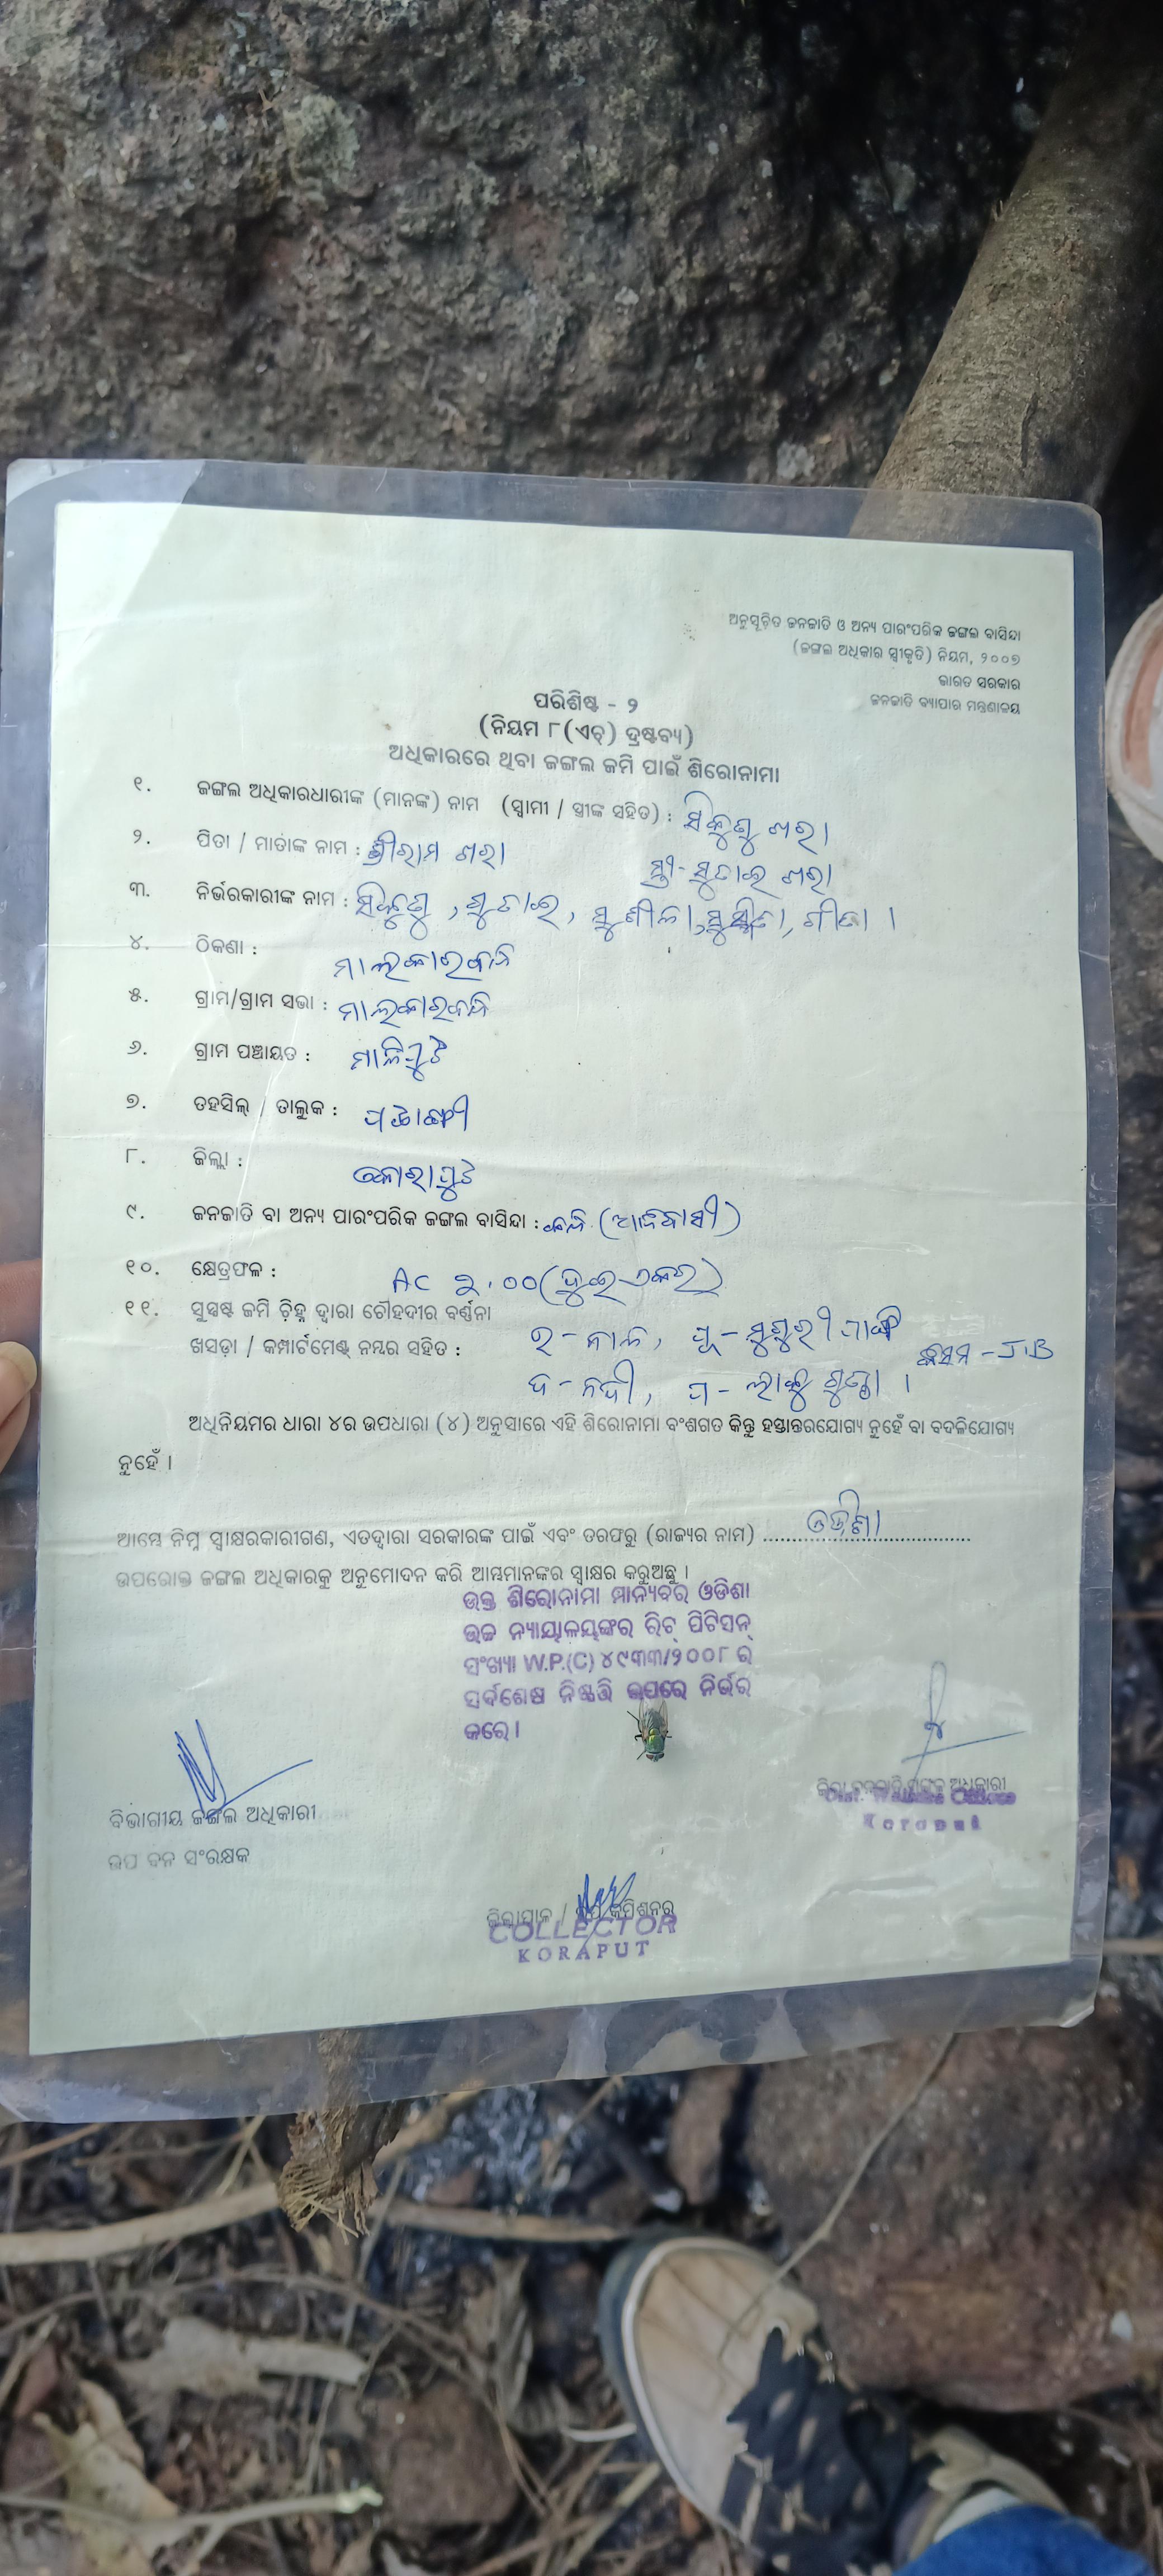 ଅନୁସୂଚିତ ଜନଜାତି ଓ ଅନ୍ୟ ପାରଂପରିକ ଜଙ୍ଗଲ ବାସିନ୍ଦା
(ଜଙ୍ଗଲ ଅଧିକାର ସ୍ୱୀକୃତି) ନିୟମ, ୨୦୦୭
ଭାରତ ସରକାର
ଜନଜାତି ବ୍ୟାପାର ମନ୍ତ୍ରଣାଳୟ
ପରିଶିଷ୍ଟ - ୨
(ନିୟମ ୮(ଏଚ୍) ଦ୍ରଷ୍ଟବ୍ୟ)
ଅଧିକାରରେ ଥିବା ଜଙ୍ଗଲ ଜମି ପାଇଁ ଶିରୋନାମା
୧. ଜଙ୍ଗଲ ଅଧିକାରଧାରୀଙ୍କ (ମାନଙ୍କ) ନାମ (ସ୍ୱାମୀ / ସ୍ତ୍ରୀଙ୍କ ସହିତ) : ଖରା
୨. ପିତା / ମାତାଙ୍କ ନାମ : ଶ୍ରୀରାମ ଖରା
ସ୍ତ୍ରୀ - ଖରା
୩. ନିର୍ଭରକାରୀଙ୍କ ନାମ : ସୁଶୀଳା, ଗୀତା ।
୪. ଠିକଣା :
୫. ଗ୍ରାମ/ଗ୍ରାମ ସଭା :
୬. ଗ୍ରାମ ପଞ୍ଚାୟତ : ମାଳିପୁଟ
୭. ତହସିଲ୍ / ତାଲୁକ : ପଟାଙ୍ଗୀ
୮. ଜିଲ୍ଲା : କୋରାପୁଟ
୯. ଜନଜାତି ବା ଅନ୍ୟ ପାରଂପରିକ ଜଙ୍ଗଲ ବାସିନ୍ଦା : (ଆଦିବାସୀ)
୧୦. କ୍ଷେତ୍ରଫଳ : AC ୨.୦୦ (ଦୁଇ ଏକର)
୧୧. ସୁସ୍ପଷ୍ଟ ଜମି ଚିହ୍ନ ଦ୍ୱାରା ଚୌହଦୀର ବର୍ଣ୍ଣନା
ଖସଡ଼ା / କମ୍ପାର୍ଟମେଣ୍ଟ୍ ନମ୍ବର ସହିତ : ଉ - ନାଳ, ପୂ -
ଦ - ନଦୀ, ପ - ।
ଅଧିନିୟମର ଧାରା ୪ର ଉପଧାରା (୪) ଅନୁସାରେ ଏହି ଶିରୋନାମା ବଂଶଗତ କିନ୍ତୁ ହସ୍ତାନ୍ତରଯୋଗ୍ୟ ନୁହେଁ ବା ବଦଳିଯୋଗ୍ୟ
ନୁହେଁ ।
ଆମ୍ଭେ ନିମ୍ନ ସ୍ୱାକ୍ଷରକାରୀଗଣ, ଏତଦ୍ୱାରା ସରକାରଙ୍କ ପାଇଁ ଏବଂ ତରଫରୁ (ରାଜ୍ୟର ନାମ) ଓଡ଼ିଶା
ଉପରୋକ୍ତ ଜଙ୍ଗଲ ଅଧିକାରକୁ ଅନୁମୋଦନ କରି ଆମ୍ଭମାନଙ୍କର ସ୍ୱାକ୍ଷର କରୁଅଛୁ ।
ଉକ୍ତ ଶିରୋନାମା ମାନ୍ୟବର ଓଡିଶା
ଉଚ୍ଚ ନ୍ୟାୟାଳୟଙ୍କର ରିଟ୍ ପିଟିସନ୍
ସଂଖ୍ୟା W.P.(C) ୪୯୩୩/୨୦୦୮ ର
ସର୍ବଶେଷ ନିଷ୍ପତ୍ତି ଉପରେ ନିର୍ଭର
କରେ ।
ବିଭାଗୀୟ ଜଙ୍ଗଲ ଅଧିକାରୀ
ଉପ ବନ ସଂରକ୍ଷକ
ଜିଲ୍ଲା ଜନଜାତି ମଙ୍ଗଳ ଅଧିକାରୀ
Koraput
ଜିଲ୍ଲାପାଳ / ଡେପୁଟି କମିଶନର
COLLECTOR
KORAPUT